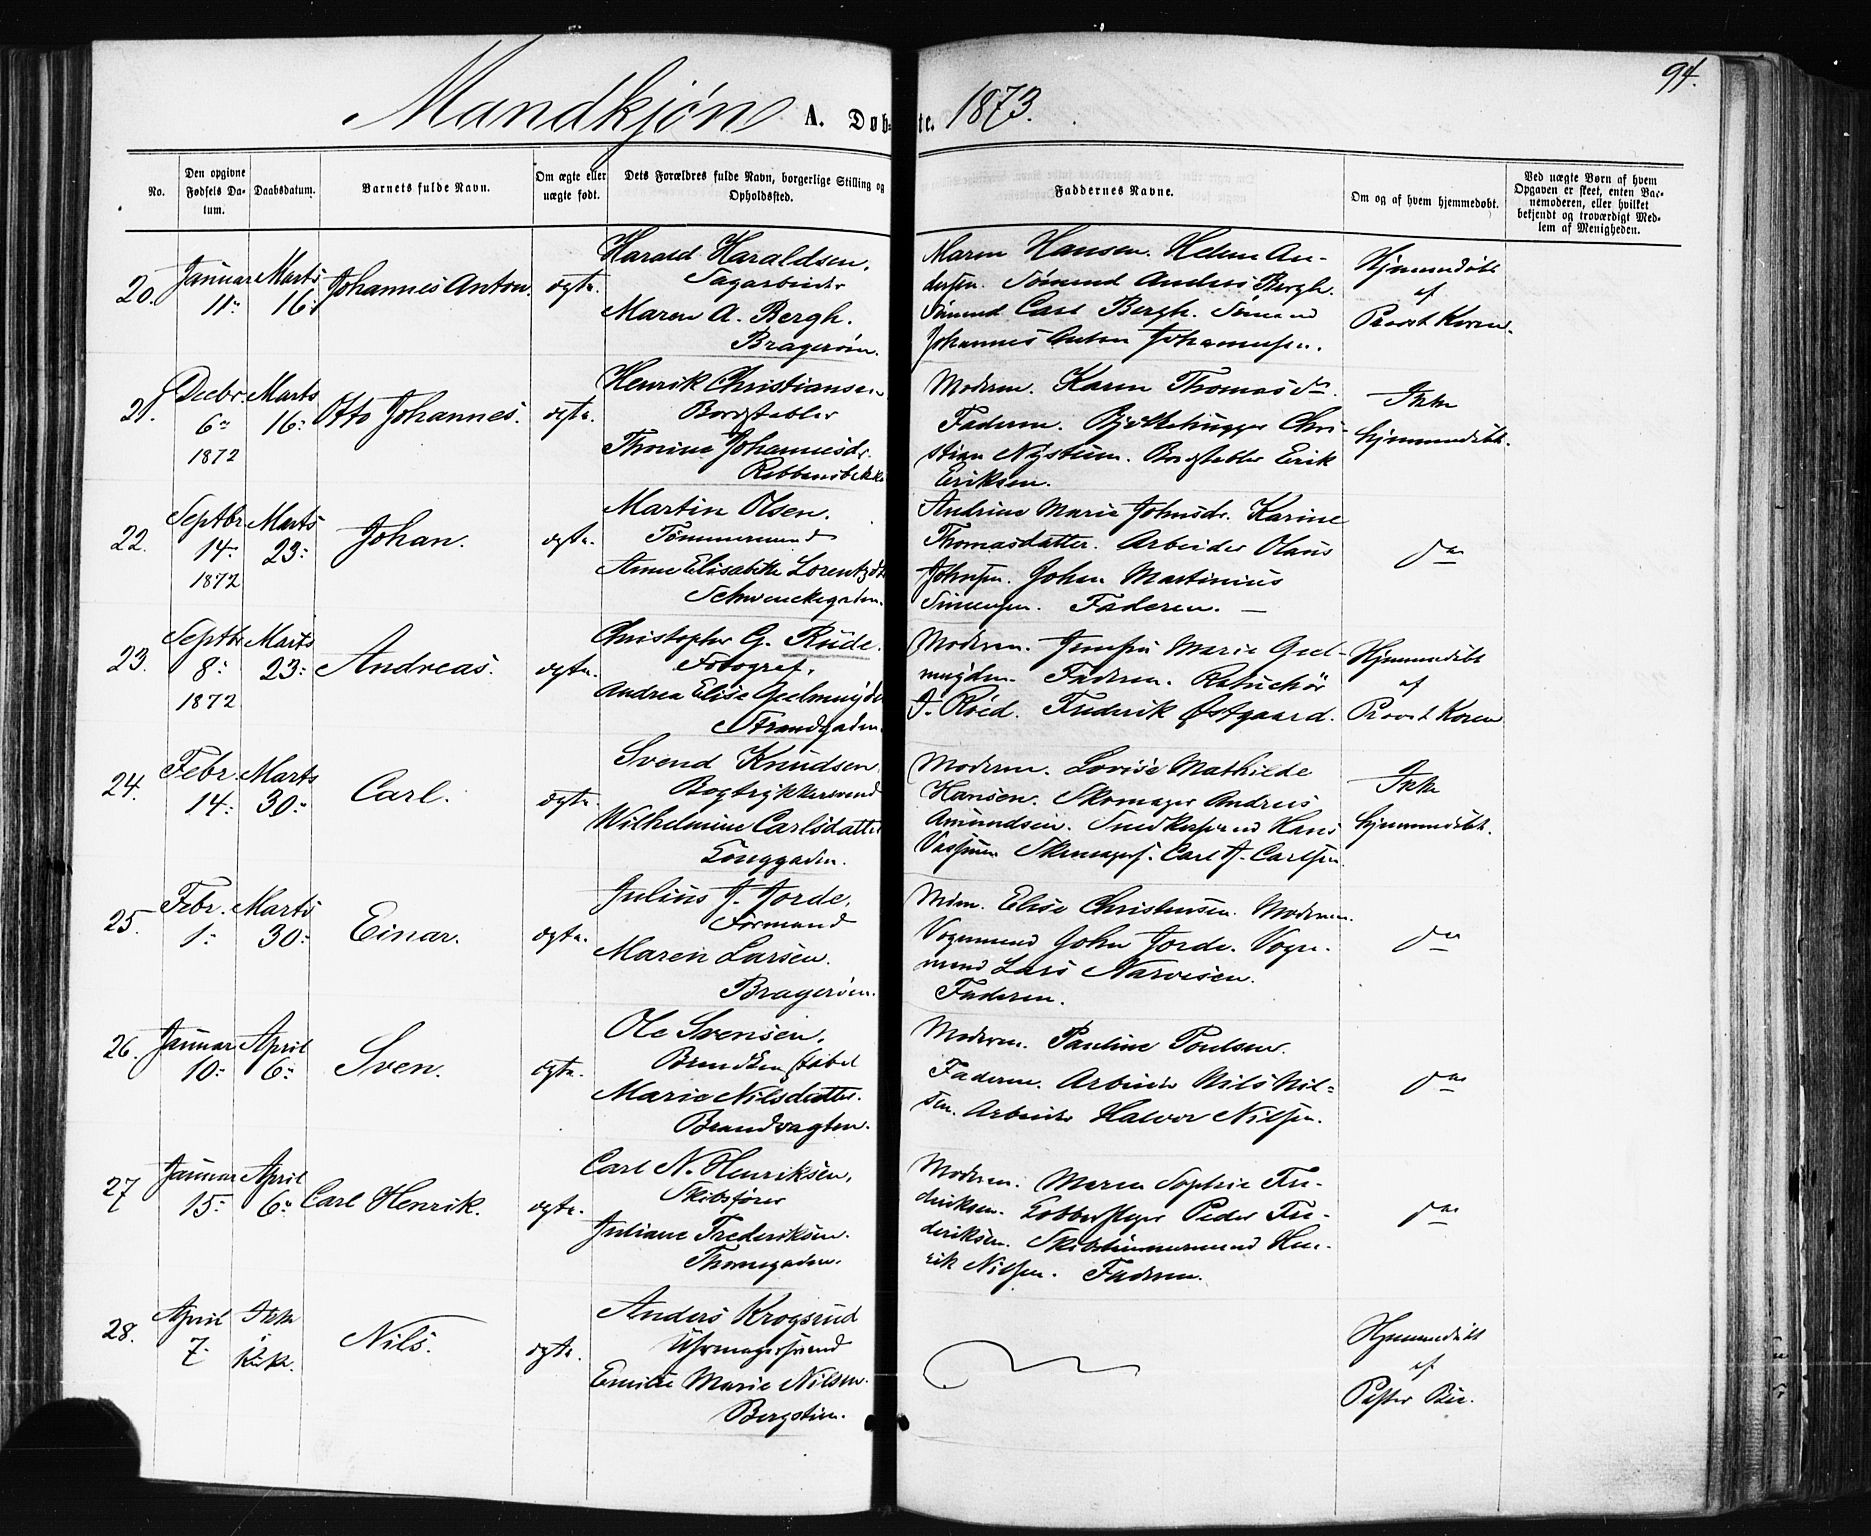 Mandkjøn A. Døbte. 1873.
94.
No.
Den opgivne Fødsels Datum.
Daabsdatum.
Barnets fulde Navn.
Om ægte eller uægte født.
Dets Forældres fulde Navn, borgerlige Stilling og Opholdssted.
Faddernes Navne.
Om og af hvem hjemmedøbt.
Ved uægte Børn af hvem Opgaven er skeet, enten Barnemoderen, eller hvilket bekjendt og troværdigt Medlem af Menigheden.
20. Januar 11. Marts 16. Johannes Anton. ægte.
Harald Haraldsen.
Sagarbeider
Maren A. Bergh.
Bragerøen.
Maren Hansen. Helene An-
dersen. Sømand Anders Bergh.
Sømand Carl Bergh. Sømand
Johannes Anton Johannesen.
Hjemmedøbt
af
Provst Koren.
21. Decbr. 6. 1872 Marts 16. Otto Johannes. ægte.
Henrik Christiansen
Bordstabler
Thorine Johannesdr.
Moderen. Karen Thomasdr.
Faderen. Bjelkehugger Chri-
stian Nystuen. Bordstabler Erik
Eriksen.
Ikke
hjemmedøbt.
22. Septbr 14. 1872 Marts 23. Johan. ægte.
Martin Olsen.
Tømmermand
Anne Elisabeth Lorentzdr
Schwenckegaden.
Andrine Marie Johnsdr. Karine
Thomasdatter. Arbeider Olaus
Johnsen. Johan Martinius
Simensen. Faderen. —
do
23. Septbr 8. 1872 Marts 23. Andreas. ægte.
Christopher G. Rude.
Fotograf.
Andrea Elise Geelmuyden
Strandgaden.
Moderen. Marie Geel-
muyden. Faderen.
J. Röed. Frederik Østgaard.
Hjemmedøbt
af
Provst Koren
24. Febr. 14. Marts 30. Carl. ægte.
Svend Knudsen
Bogtrykkersvend
Wilhelmine Carlsdatter
Konggaden.
Moderen. Lovise Mathilde
Hansen. Skomager Andreas
Amundsen. Snedkersvend Hans
Skomagers. Carl J. Carlsen.
Ikke
hjemmedøbt.
25. Febr. 1. Marts 30. Einar. ægte.
Julius J. Jorde.
Formand
Maren Larsen.
Bragerøen.
Mdm. Elise Christensen. Moderen.
Vognmand John Jorde. Vogn-
mand Lars Narvesen.
Faderen.
do
26. Januar 10. April 6. Sven. ægte.
Ole Svensen.
Brandkonstabel
Marie Nilsdatter.
Brandvagten.
Moderen. Pauline Poulsen.
Faderen. Arbeider Nils Nil-
sen. Arbeider Halvor Nilsen.
do
27 Januar 15. April 6. Carl Henrik. ægte.
Carl N. Henriksen.
Skibsfører
Juliane Frederiksen.
Thornegaden.
Moderen. Maren Sophie Fre-
deriksen. Kobberslager Peder Fre-
deriksen. Skibstømmermand Hen-
rik Nilsen. Faderen.
do
28. April 7. Ikke i Kirk. Nils. ægte.
Anders Krogsrud
Uhrmagersvend
Emilie Marie Nilsen.
Bergstien.
Hjemmedøbt
af
Pastor Bue.